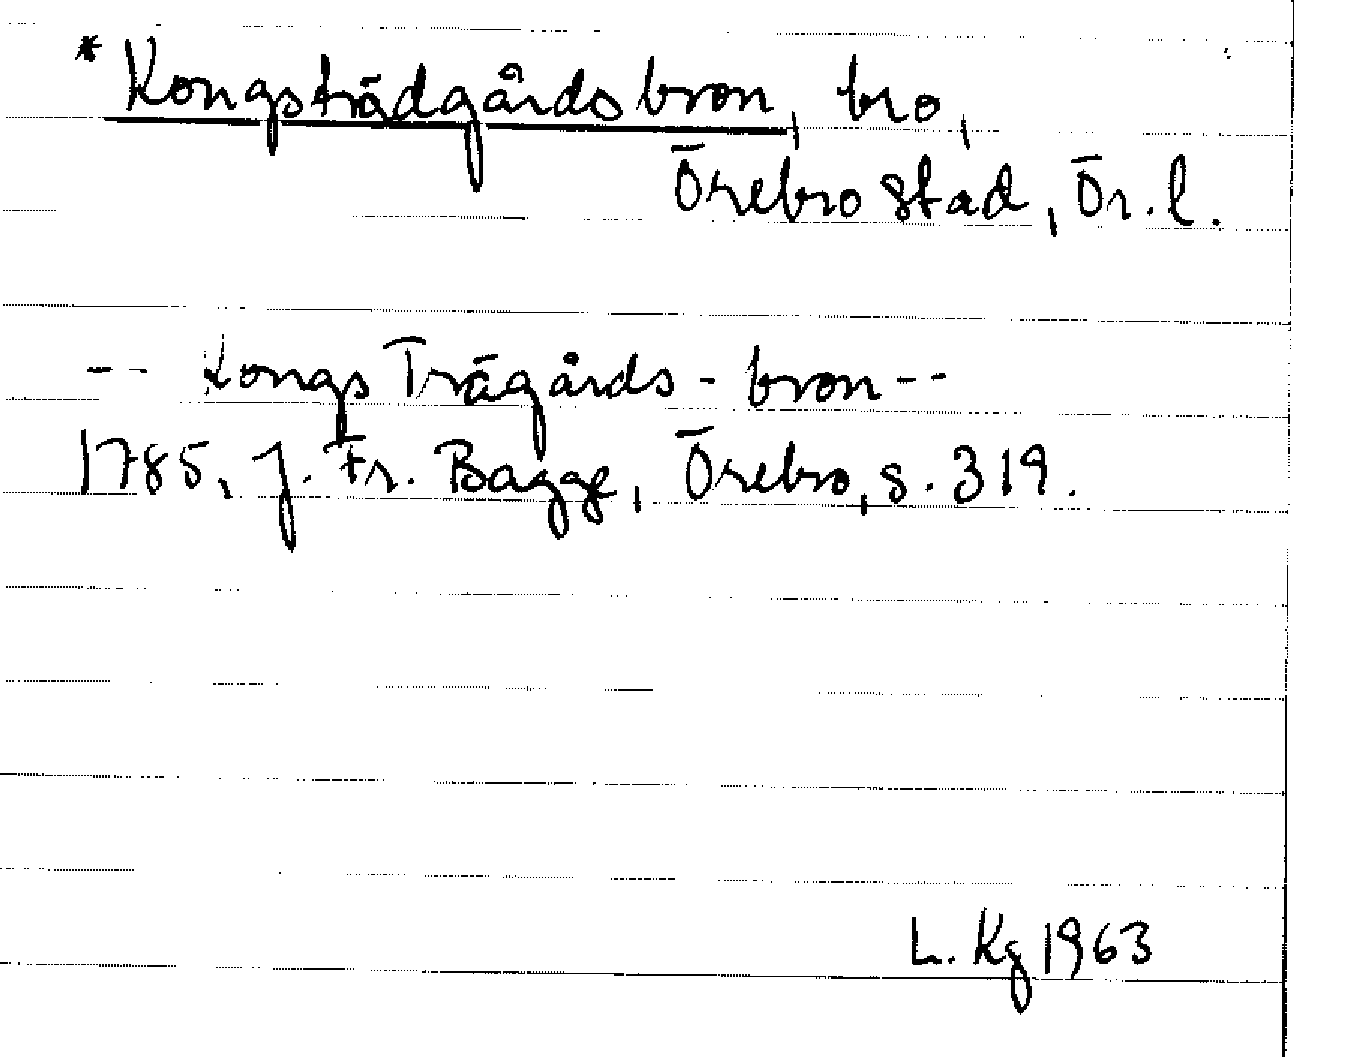 * Kongsträdgårdsbron, bro,
Örebro stad, Ör. l.
-- Kongs Trägårds - bron --
1785, J. Fr. Bagge, Örebro, s. 319.
L. Kg 1963